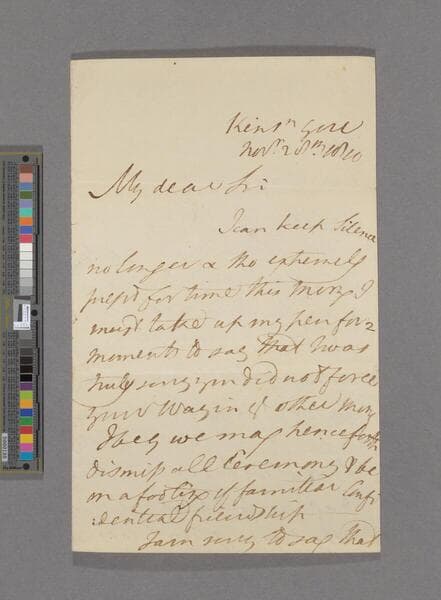 Kensn Gore
Novr 28th 1810
My dear Sir
I can keep Silence
no longer & tho extremely
press'd for time this Morng I
must take up my pen for 2
moments to say that I was
truly sorry you did not force
your Way in ye other Morng
I beg we may henceforth
dismiss all Ceremony & be
on a footing of familiar Confi
:dential friendship
I am sorry to say that